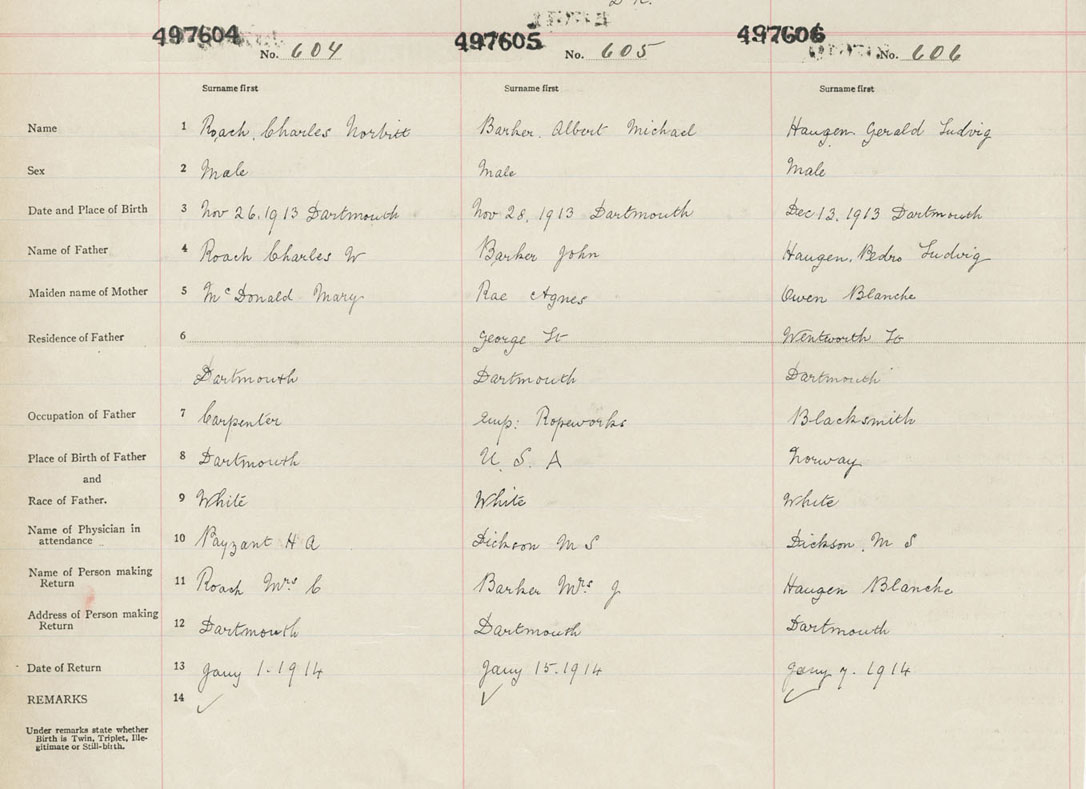 497604 No. 604 497605 No. 605 497606 No. 606
Surname first Surname first Surname first
Name 1 Roach, Charles Norbitt Barker, Albert Michael Haugen, Gerald Ludvig
Sex 2 Male Male Male
Date and Place of Birth 3 Nov 26, 1913 Dartmouth Nov 28, 1913 Dartmouth Dec 13, 1913 Dartmouth
Name of Father 4 Roach Charles W Barker John Haugen, Pedro Ludvig
Maiden name of Mother 5 McDonald Mary Rae Agnes Owen Blanche
Residence of Father 6 George St Wentworth St
Dartmouth Dartmouth Dartmouth
Occupation of Father 7 Carpenter Emp: Ropeworks Blacksmith
Place of Birth of Father 8 Dartmouth U. S. A Norway
and
Race of Father. 9 White White White
Name of Physician in
attendance 10 Payzant H A Dickson M S Dickson, M S
Name of Person making
Return 11 Roach Mrs C Barker Mrs J Haugen Blanche
Address of Person making
Return 12 Dartmouth Dartmouth Dartmouth
Date of Return 13 Jany 1. 1914 Jany 15. 1914 Jany 7. 1914
REMARKS 14
Under remarks state whether
Birth is Twin, Triplet, Ille-
gitimate or Still-birth.